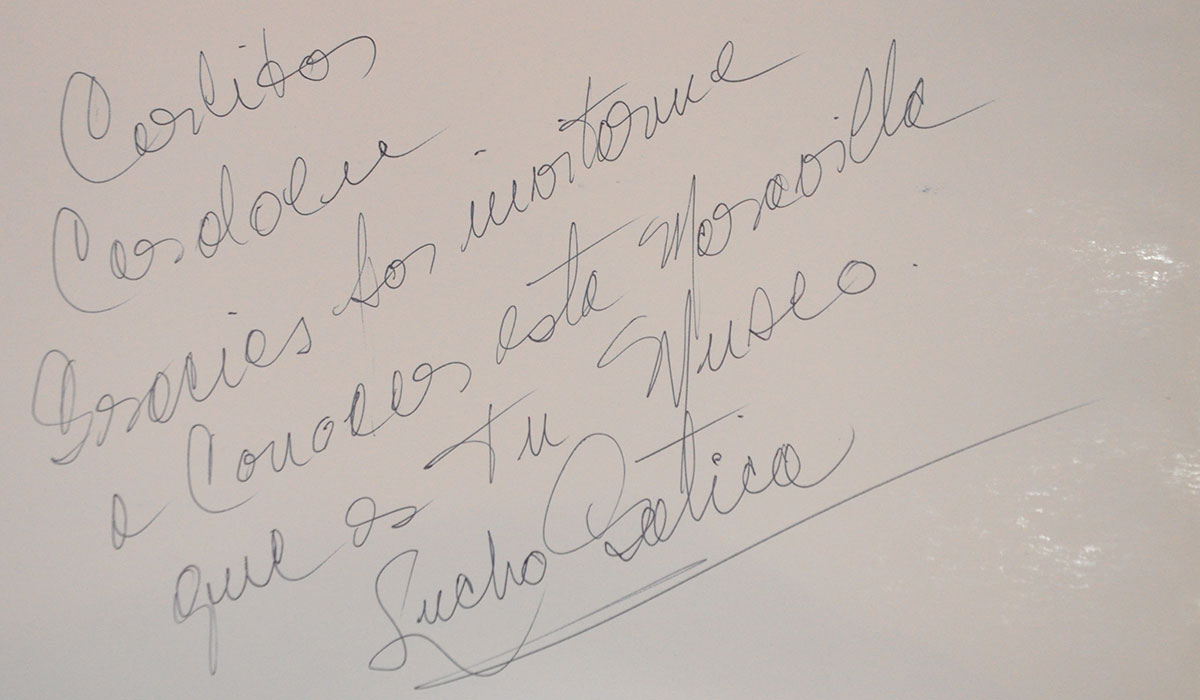 Carlitos
Cardoen
Gracias por invitarme
a Conocer esta Maravilla
que es tu Museo.
Lucho Gatica